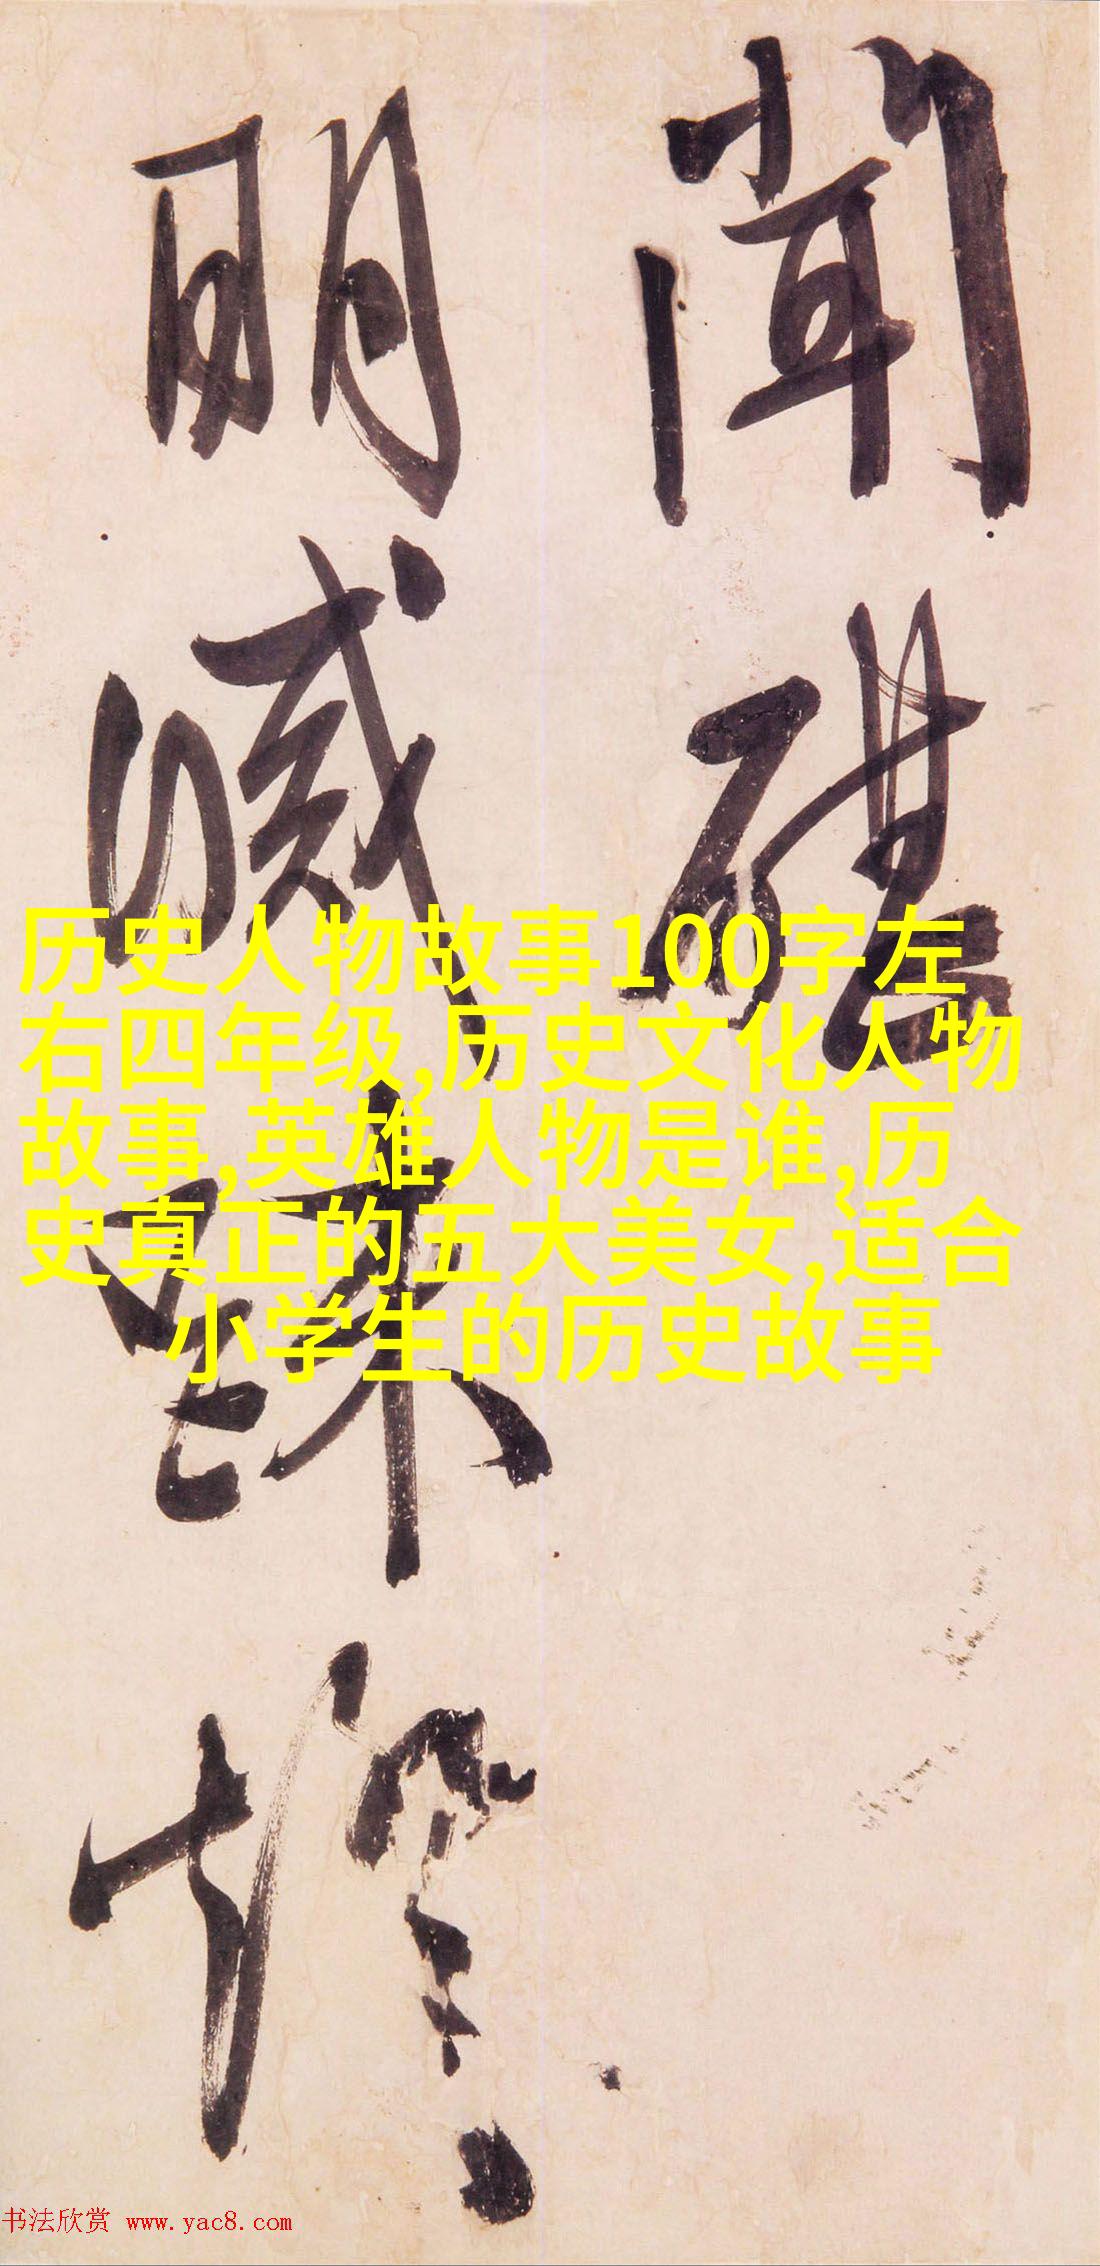 聞碪
明滅踈
历史人物故事100字左
右四年级,历史文化人物
故事,英雄人物是谁,历
史真正的五大美女,适合
小学生的历史故事
书法欣赏 www.yac8.com